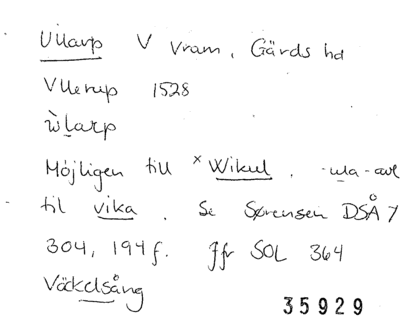 Ullarp V Vram, Gärds hd
Vllerup 1528
ẁlarp
Möjligen till ×Wikul, -ula-avl
til vika. Se Sørensen DSÅ 7
304, 194f. Jfr SOL 364
Väckelsång
35929